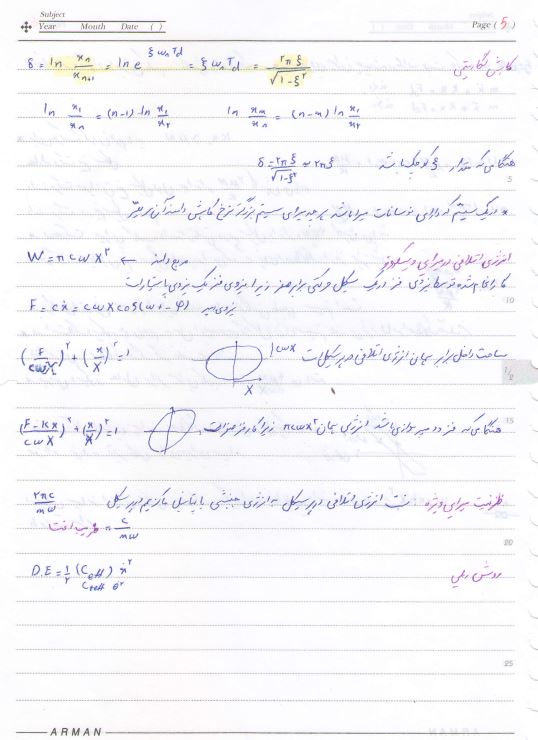 Subject
Year Month Date ( )
Page (5)
کاهش لگاریتمی δ = ln xₙ/xₙ₊₁ = ln e^(ξ ωₙ T_d) = ξ ωₙ T_d = ۲πξ/√(1-ξ²)
ln x₁/xₙ = (n-1) ln x₁/x₂ ln xₘ/xₙ = (n-m) ln x₁/x₂
هنگامی که مقدار ξ کوچک باشد δ = ۲πξ/√(1-ξ²) ≈ ۲πξ
5
* در یک سیستم که دارای نوسانات میرا باشد هر چه میرایی سیستم بزرگتر نرخ کاهش دامنه آن سریعتر
انرژی اتلافی در میرایی ویسکوز
W = π c ω X² ← مربع دامنه
کار انجام شده توسط نیروی فنر در یک سیکل حرکتی برابر صفر زیرا نیروی فنر یک نیروی پایستار است
10
F = cẋ = cωX cos(ωt - φ) نیروی میرا
(F/cωX)² + (x/X)² = 1 cωX X مساحت داخل برابر همان انرژی اتلافی در هر سیکل است
1/2
15
هنگامی که فنر و دمپر موازی باشد انرژی همان πcωX² زیرا کار فنر صفر است (F-Kx/cωX)² + (x/X)² = 1
ظرفیت میرایی ویژه: نسبت انرژی اتلافی در هر سیکل به انرژی جنبشی یا پتانسیل ماکزیمم در هر سیکل ۲πc/mω
c/mω = ضریب افت
20
روش ریلی D.E = ½ (C_eff) ẋ²
C_teff θ̇²
25
ARMAN